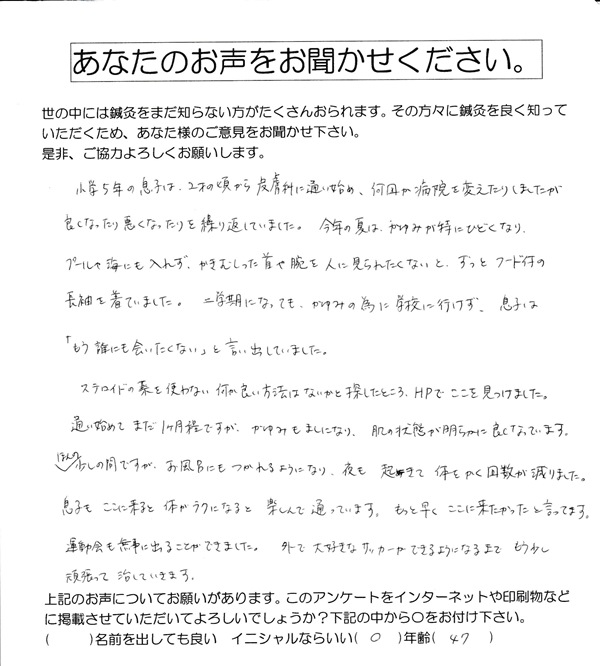 あなたのお声をお聞かせください。
世の中には鍼灸をまだ知らない方がたくさんおられます。その方々に鍼灸を良く知って
いただくため、あなた様のご意見をお聞かせ下さい。
是非、ご協力よろしくお願いします。
小学5年の息子は、2才の頃から皮膚科に通い始め、何回か病院を変えたりしましたが
良くなったり悪くなったりを繰り返していました。今年の夏は、かゆみが特にひどくなり、
プールや海にも入れず、かきむしった首や腕を人に見られたくないと、ずっとフード付の
長袖を着ていました。二学期になっても、かゆみの為に学校に行けず、息子は
「もう誰にも会いたくない」と言い出していました。
ステロイドの薬を使わない何か良い方法はないかと探したところ、HPでここを見つけました。
通い始めてまだ1ヶ月程ですが、かゆみもましになり、肌の状態が明らかに良くなっています。
ほんの少しの間ですが、お風呂にもつかれるようになり、夜も起きて体をかく回数が減りました。
息子もここに来ると体がラクになると楽しんで通っています。もっと早くここに来たかったと言ってます。
運動会も無事に出ることができました。外で大好きなサッカーができるようになるまでもう少し
頑張って治していきます。
上記のお声についてお願いがあります。このアンケートをインターネットや印刷物など
に掲載させていただいてよろしいでしょうか？下記の中から○をお付け下さい。
(　　)名前を出しても良い　イニシャルならいい(　○　)年齢(　47　)